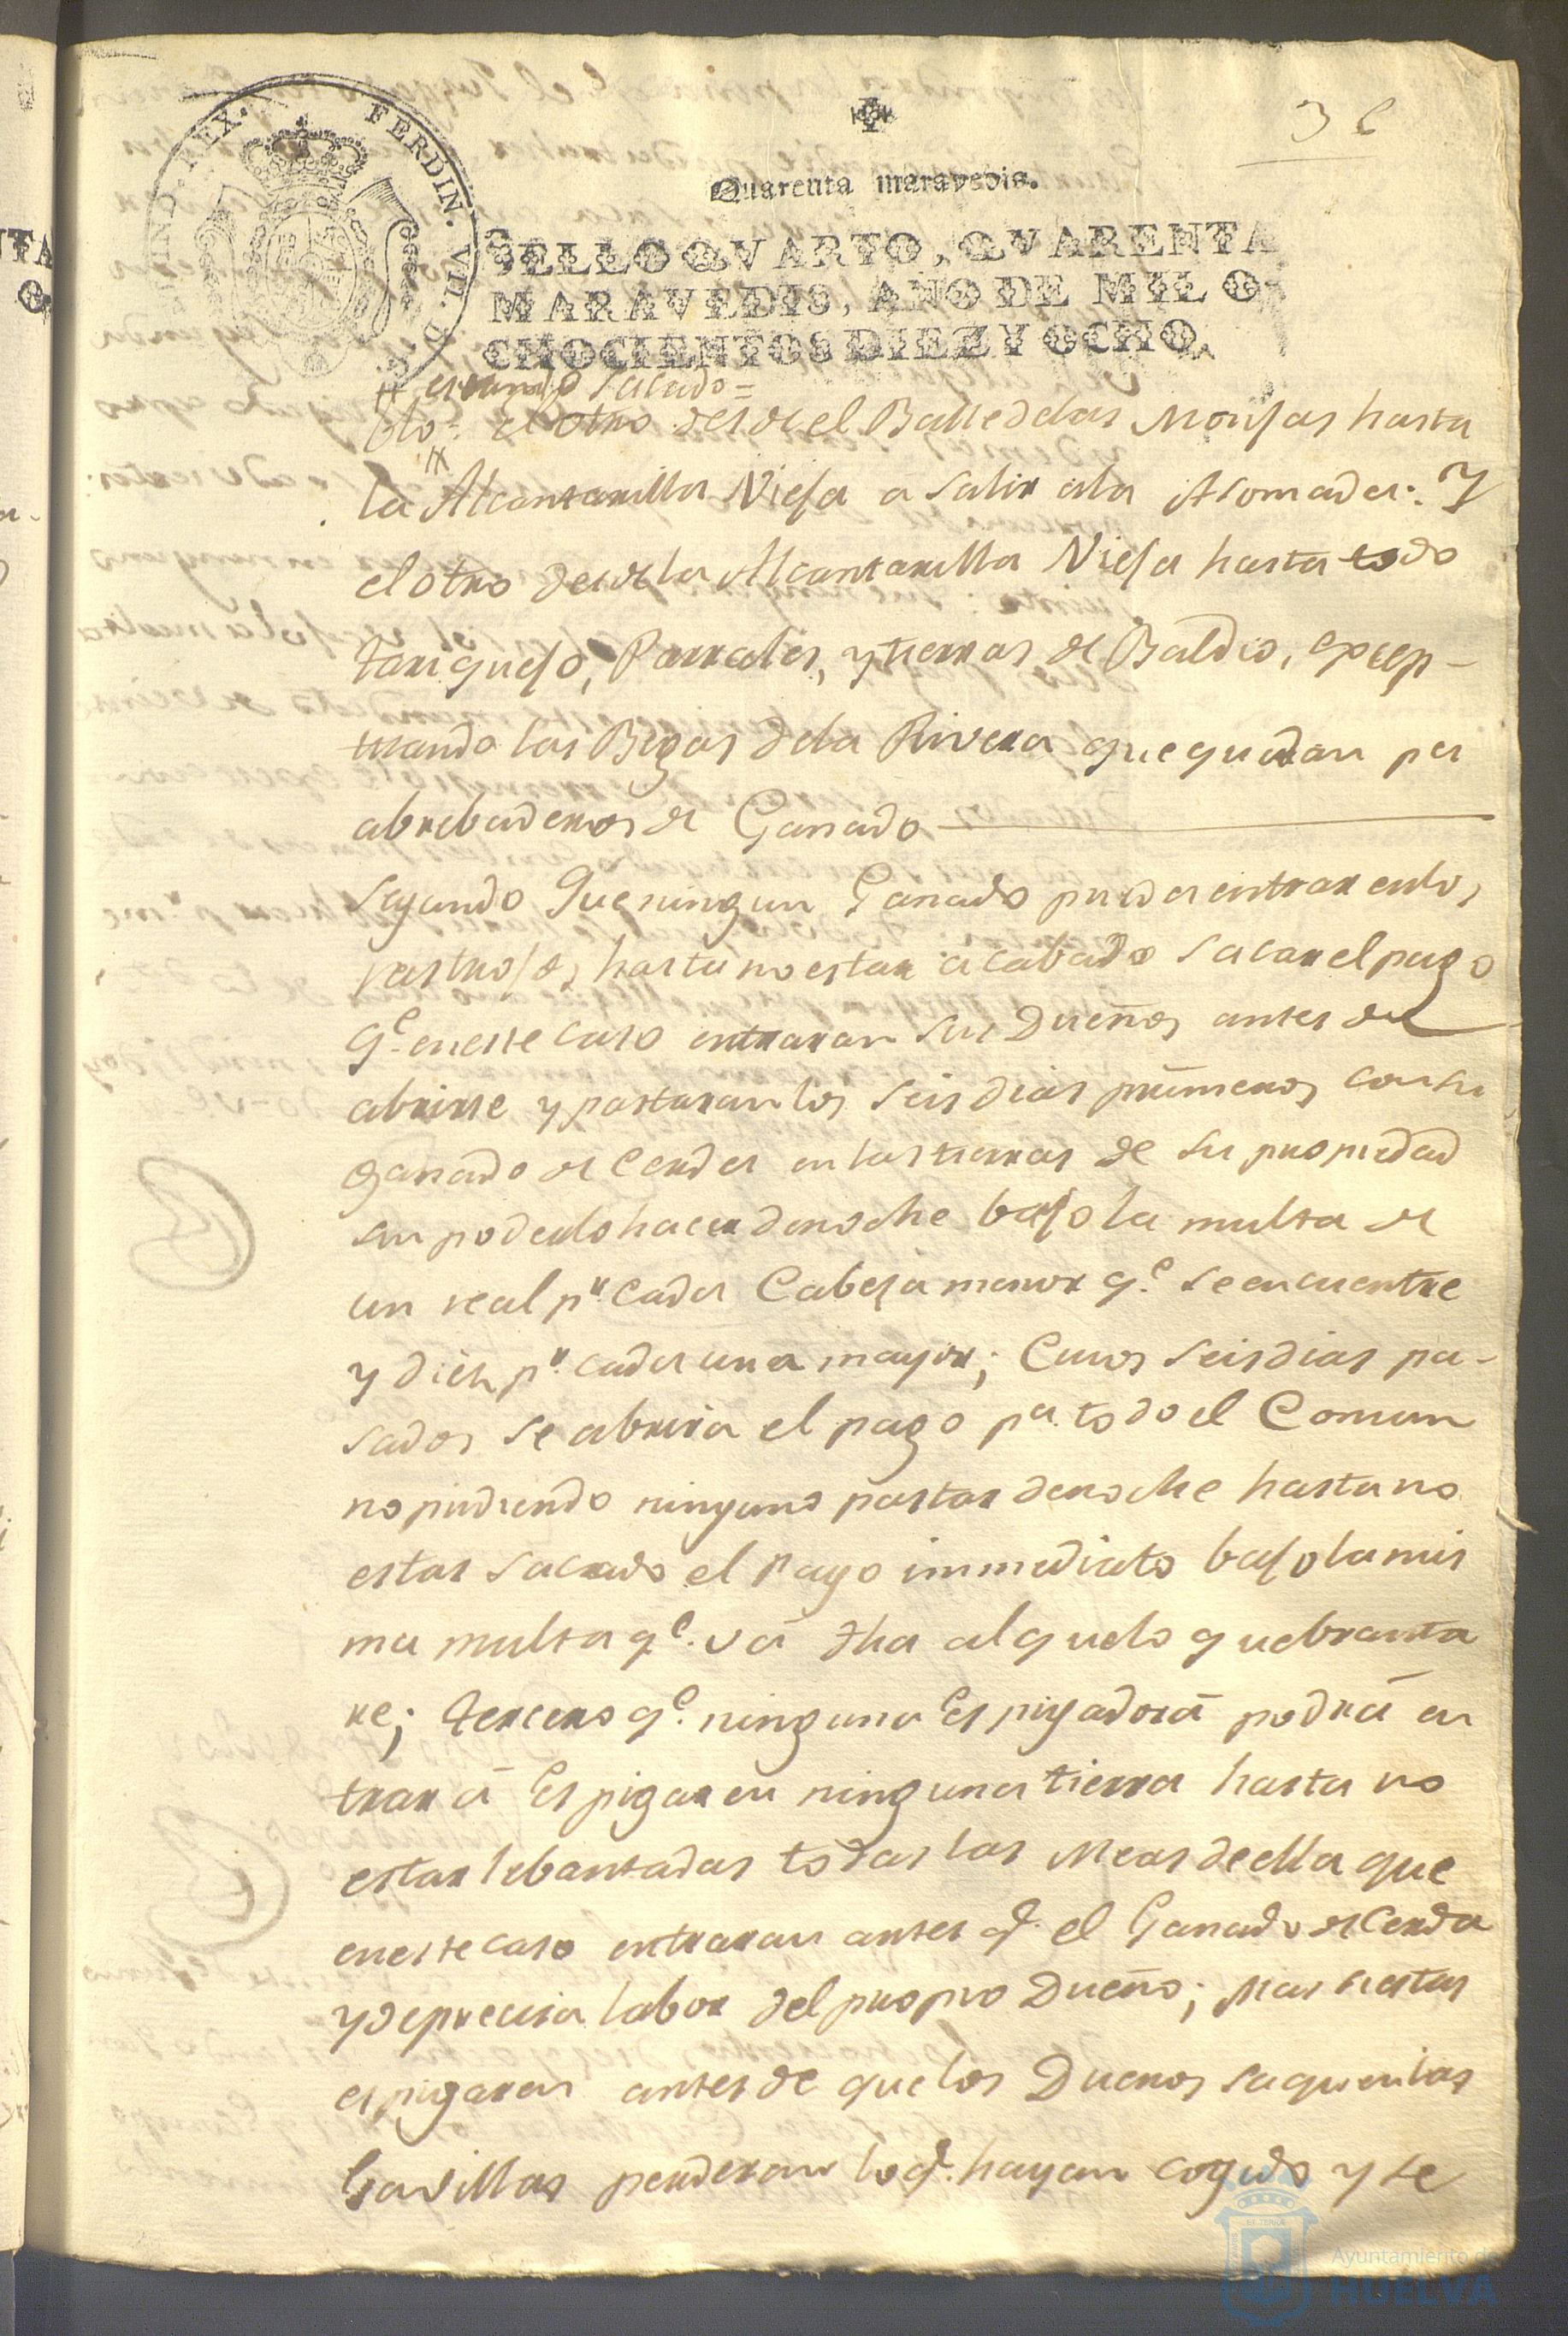 36
FERDIN. VII. D.
IND. REX.
Quarenta maravedis.
SELLO QVARTO, QVARENTA
MARAVEDIS, AÑO DE MIL O-
CHOCIENTOS DIEZ Y OCHO.
estando sacado =
blo = el otro desde el Balle delas Monjas hasta
la Alcantarilla Vieja a salir ala Asomada: Y
el otro desde la Alcantarilla Vieja hasta todo
tariquejo, Parrales, y tierras de Baldio, excep-
tuando las Begas dela Rivera que quedan pa
abrebaderos de Ganado
Segundo Que ningun Ganado pueda entrar enlos
rastrojos, hasta no estar acabado sacar el pago
q.e eneste caso entraran sus Dueños antes de
abrirse y pastaran los seis dias primeros con su
ganado de Cerda en las tierras de su propiedad
sin poderlo hacer denoche bajo la multa de
un real p.r cada Cabeza menor q.e se encuentre
y diez p.r cada una mayor; Cuios seis dias pa-
sados se abrira el pago p.a todo el Comun
no pudiendo ninguno pastar denoche hasta no
estar sacado el Pago immediato bajo la mis
ma multa q.e vá dha al que lo quebranta
re; tercero q.e ninguna Espigadora podrá en
trar á Espigar en ninguna tierra hasta no
estar lebantadas todas las Meas de ella que
eneste caso entraran antes q.e el Ganado de Cerda
y de precisa labor del propio Dueño; Mas si estas
espigaren antes de que los Duenos saquen las
Gavillas perderan lo q.e hayan cogido y se
Ayuntamiento de
HUELVA